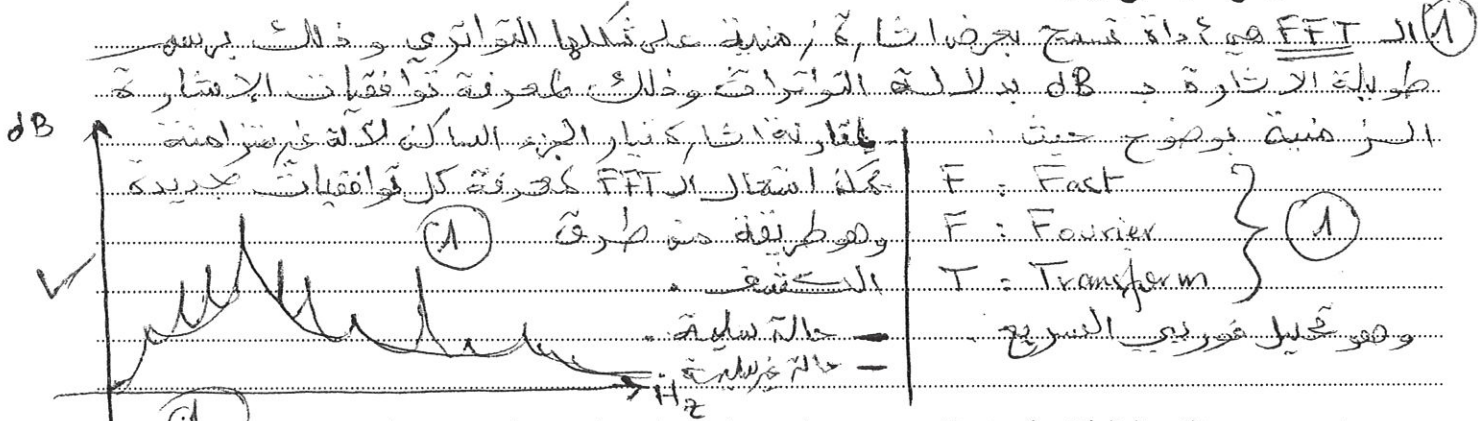 ① الـ FFT هي أداة تسمح بعرض اشارة زمنية على شكلها التواتري وذلك برسم
طويلة الاشارة بـ dB بدلالة التواترات وذلك لمعرفة توافقيات الاشارة
الزمنية بوضوح حيث :
F : Fast
F : Fourier
T : Transform
①
وهو تحليل فوريي السريع .
بمقارنة اشارة تيار الجزء الساكن لآلة غير متزامنة
يمكن استعمال الـ FFT لمعرفة كل توافقيات جديدة
وهو طريقة من طرق ①
الكشف .
– حالة سليمة .
– حالة غير سليمة .
dB
Hz
①